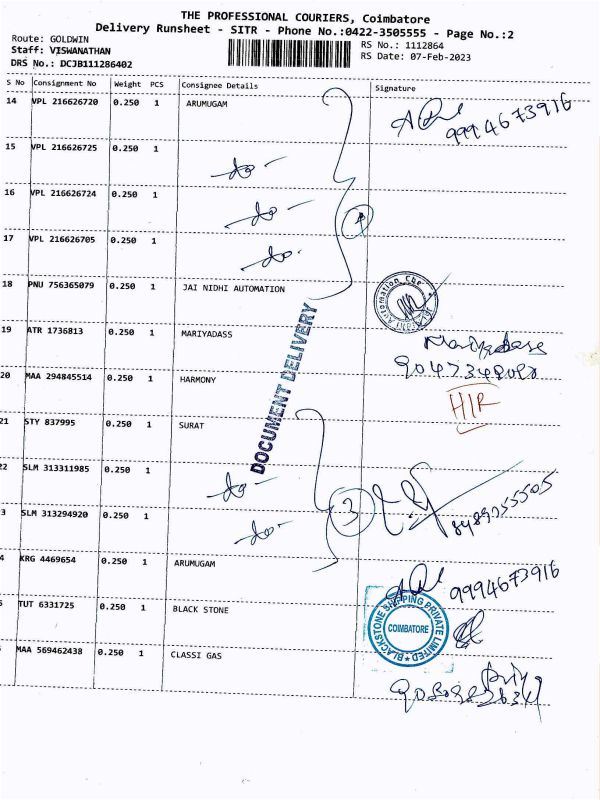 THE PROFESSIONAL COURIERS, Coimbatore
Delivery Runsheet - SITR - Phone No.:0422-3505555 - Page No.:2
Route: GOLDWIN
RS No.: 1112864
Staff: VISWANATHAN
RS Date: 07-Feb-2023
DRS No.: DCJB111286402
S No Consignment No Weight PCS Consignee Details Signature
14 VPL 216626720 0.250 1 ARUMUGAM
9994673916
15 VPL 216626725 0.250 1 -do-
16 VPL 216626724 0.250 1 -do-
17 VPL 216626705 0.250 1 -do-
18 PNU 756365079 0.250 1 JAI NIDHI AUTOMATION
19 ATR 1736813 0.250 1 MARIYADASS Mariyadass
20 MAA 294845514 0.250 1 HARMONY
DOCUMENT DELIVERY
21 STY 837995 0.250 1 SURAT
22 SLM 313311985 0.250 1 -do-
3 SLM 313294920 0.250 1 -do- 3
4 KRG 4469654 0.250 1 ARUMUGAM 9994673916
5 TUT 6331725 0.250 1 BLACK STONE
BLACKSTONE SHIPPING PRIVATE LIMITED
COIMBATORE
MAA 569462438 0.250 1 CLASSI GAS